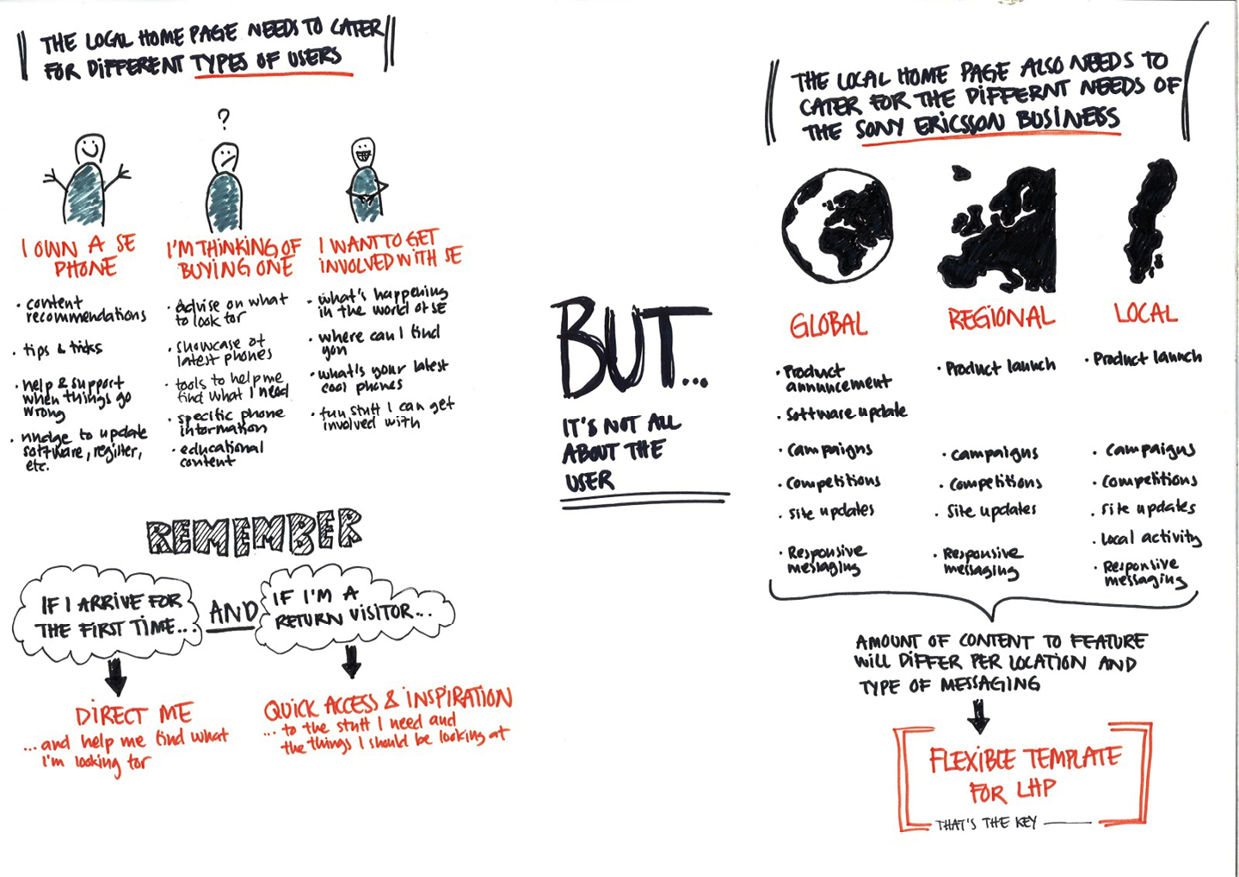 THE LOCAL HOME PAGE NEEDS TO CATER
FOR DIFFERENT TYPES OF USERS
?
I OWN A SE
PHONE
• content
recommendations
• tips & tricks
• help & support
when things go
wrong
• nudge to update
software, register,
etc.
I'M THINKING OF
BUYING ONE
• Advise on what
to look for
• showcase of
latest phones
• tools to help me
find what I need
• specific phone
information
• educational
content
I WANT TO GET
INVOLVED WITH SE
• what's happening
in the world of SE
• where can I find
you
• what's your latest
cool phones
• fun stuff I can get
involved with
REMEMBER
IF I ARRIVE FOR
THE FIRST TIME...
AND
IF I'M A
RETURN VISITOR...
DIRECT ME
...and help me find what
I'm looking for
QUICK ACCESS & INSPIRATION
... to the stuff I need and
the things I should be looking at
BUT...
IT'S NOT ALL
ABOUT THE
USER
THE LOCAL HOME PAGE ALSO NEEDS TO
CATER FOR THE DIFFERNT NEEDS OF
THE SONY ERICSSON BUSINESS
GLOBAL
• Product
annuncement
• Software update
• Campaigns
• Competitions
• Site updates
• Responsive
messaging
REGIONAL
• Product launch
• Campaigns
• Competitions
• Site updates
• Responsive
messaging
LOCAL
• Product launch
• Campaigns
• Competitions
• Site updates
• Local activity
• Responsive
messaging
AMOUNT OF CONTENT TO FEATURE
WILL DIFFER PER LOCATION AND
TYPE OF MESSAGING
FLEXIBLE TEMPLATE
FOR LHP
THAT'S THE KEY